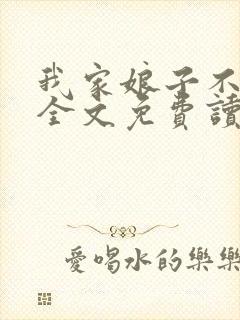 我家娘子不
全文免費讀
愛喝水的樂樂